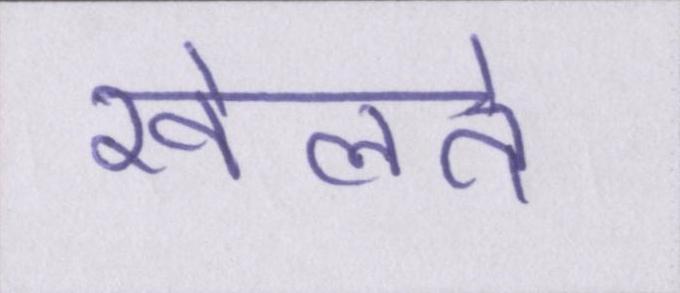 खेलते